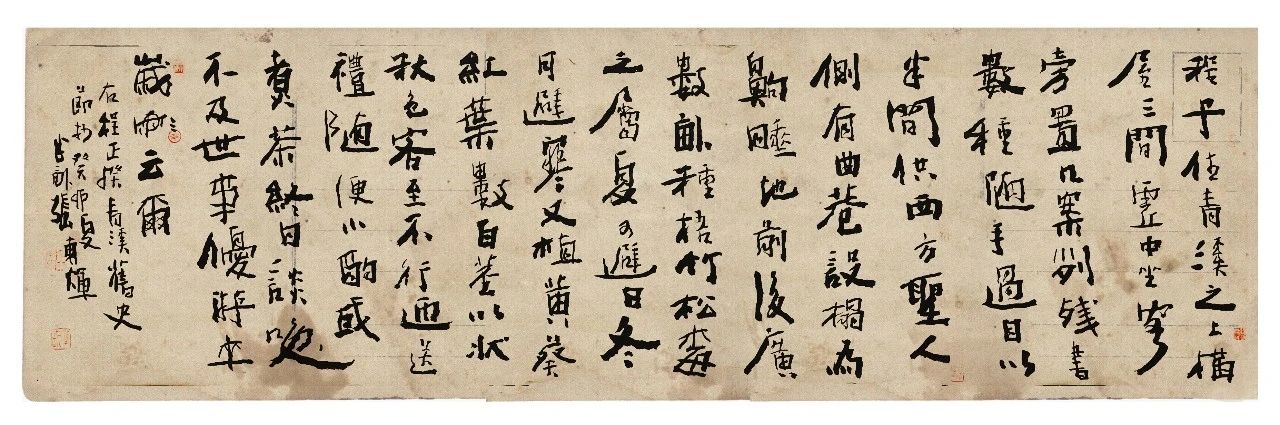 程子住青溪之上構
屋三間虛中坐客
旁置几案列殘書
數種随手過目以
半間供西方聖人
側有曲巷設榻為
鼾睡地前後廣
數畝種梧竹松梅
之屬夏可避日冬
可避寒又植黄葵
紅葉數百莖以狀
秋色客至不行迎送
禮随便小酌或
煮茶終日談咲
不及世事優游卒
歲云爾
右程正揆青溪舊史
節抄癸卯夏
張